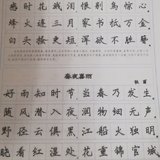 感时花溅泪,恨别鸟惊心。
烽火连三月,家书抵万金。
白头搔更短,浑欲不胜簪。
春夜喜雨
杜甫
好雨知时节,当春乃发生。
随风潜入夜,润物细无声。
野径云俱黑,江船火独明。
晓看红湿处,花重锦官城。